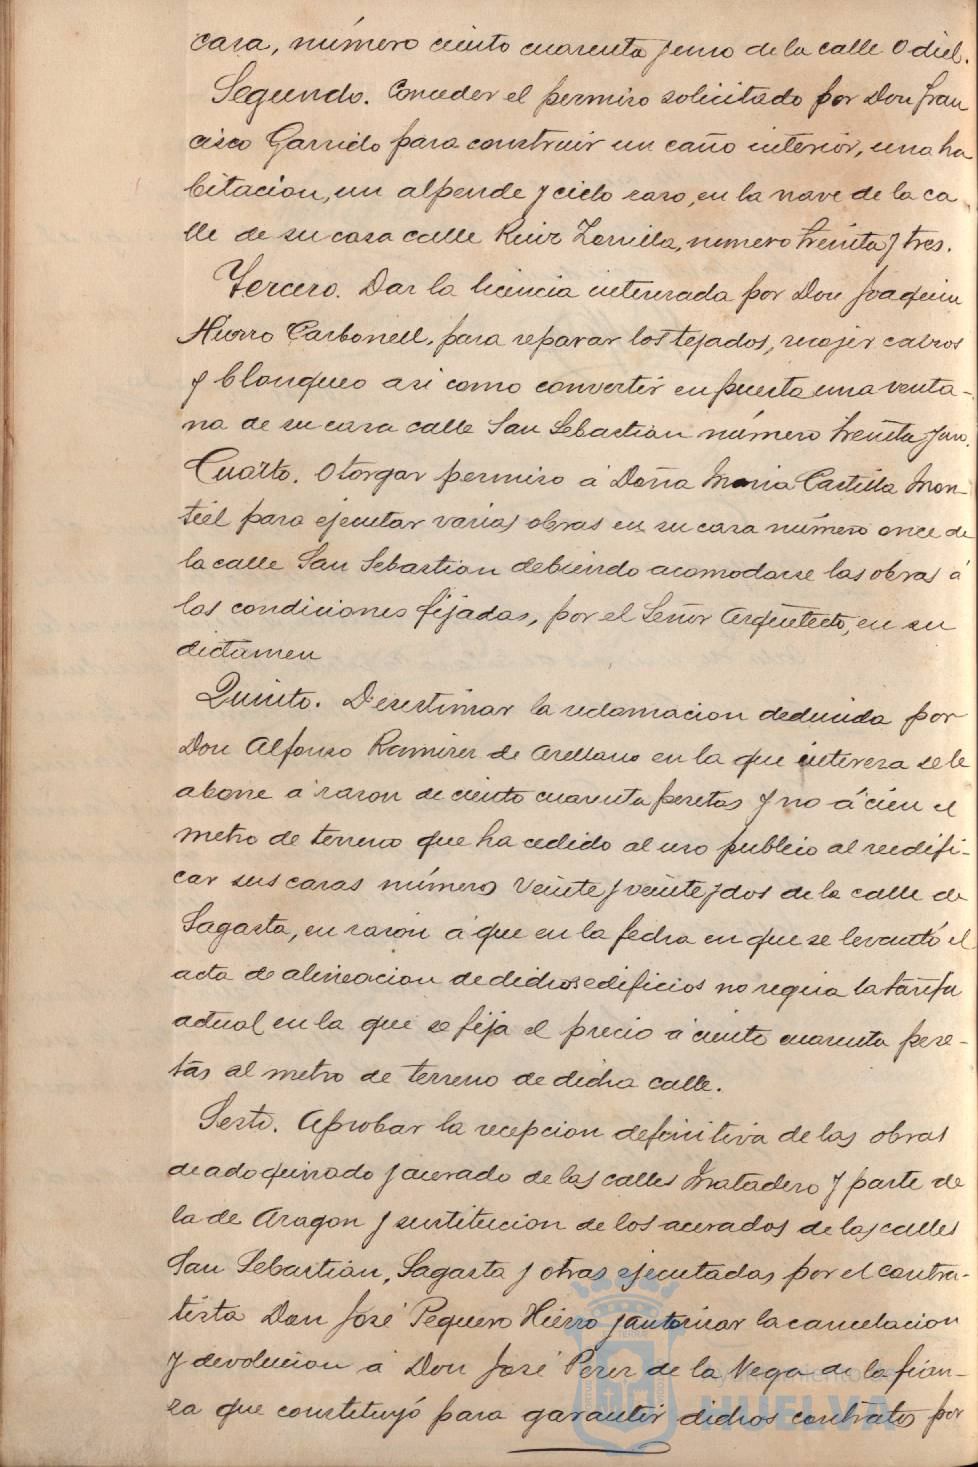 casa, número ciento cuarenta y uno de la calle Odiel.
Segundo. Conceder el permiso solicitado por Don Fran
cisco Garrido para construir un caño interior, una ha
bitacion, un alpende y cielo raso, en la nave de la ca
lle de su casa calle Ruiz Zorrilla, numero treinta y tres.
Tercero. Dar la licencia interesada por Don Joaquin
Hierro Carbonell, para reparar los tejados, recojer calros
y blanqueo asi como convertir en puerta una venta-
na de su casa calle San Sebastian número treinta y uno.
Cuarto. Otorgar permiso á Doña Maria Castilla Mon-
tiel para ejecutar varias obras en su casa número once de
la calle San Sebastian debiendo acomodarse las obras á
las condiciones fijadas, por el Señor Arquitecto, en su
dictamen
Quinto. Desestimar la reclamacion deducida por
Don Alfonso Ramirez de Arellano en la que interesa se le
abone á razon de ciento cuarenta pesetas y no á cien el
metro de terreno que ha cedido al uso publico al reedifi-
car sus casas número veinte y veinte y dos de la calle de
Sagasta, en razón á que en la fecha en que se levantó el
acta de alineacion de dichos edificios no regia la tarifa
actual en la que se fija el precio á ciento cuarenta pese-
tas al metro de terreno de dicha calle.
Sesto. Aprobar la recepcion definitiva de las obras
de adoquinado y acerado de las calles Matadero y parte de
la de Aragon y sustitucion de los acerados de las calles
San Sebastian, Sagasta y otras ejecutadas por el contra-
tista Don José Peguero Hierro y autorizar la cancelacion
y devolucion á Don José Perez de la Vega de la fian-
za que constituyó para garantir dichos contratos por
Ayuntamiento de
HUELVA